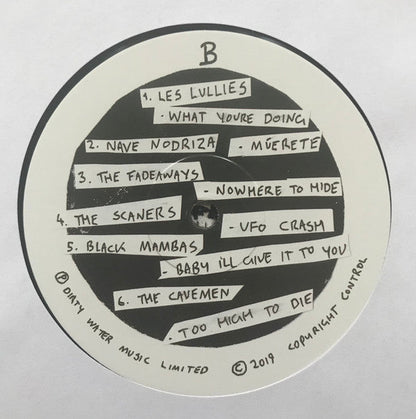 B
1. LES LULLIES
- WHAT YOURE DOING
2. NAVE NODRIZA
- MÚERETE
3. THE FADEAWAYS
- NOWHERE TO HIDE
4. THE SCANERS
- UFO CRASH
5. BLACK MAMBAS
- BABY I'LL GIVE IT TO YOU
6. THE CAVEMEN
- TOO HIGH TO DIE
Ⓟ DIRTY WATER MUSIC LIMITED © 2019 COPYRIGHT CONTROL